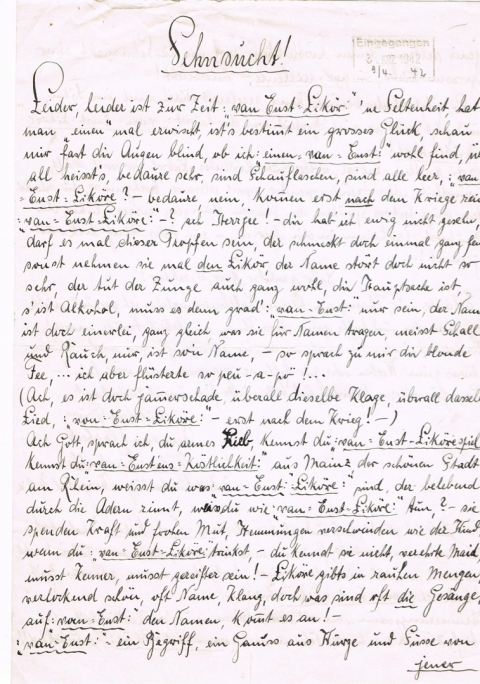 Sehnsucht!
Eingegangen
9/4. 42
Leider, leider ist zur Zeit: "van Enst-Likör:" 'ne Seltenheit, hat
man "einen" mal erwischt, ist's bestimmt ein grosses Glück, schau
mir fast die Augen blind, ob ich: "einen = van = Enst:" wohl find, ü
all heisst's, bedaure sehr, sind Schauflaschen, sind alle leer, : "van =
Enst = Liköre"? - bedaure nein, können erst nach dem Kriege
: "van = Enst = Liköre:" -? ach Herrgee! - die hat ich ewig nicht gesehn,
darf es mal dieser Tropfen sein, der schmeckt doch einmal ganz
sonst nehmen sie mal den Likör, der Name stört doch nicht so
sehr, der tut der Zunge auch ganz wohl, die Hauptsache ist,
s'ist Alkohol, muss es denn grad': "van = Enst:" nur sein, der Nam
ist doch einerlei, ganz gleich was sie für Namen tragen, meisst Schall
und Rauch, nur, ist son Name, - so sprach zu mir die blonde
Fee, ... ich aber flüsterte so peu - a - pö! ...
(Ach, es ist doch jammerschade, überall dieselbe Klage, überall dassel
Lied, : "van = Enst = Liköre:" - erst nach dem Krieg! -)
Ach Gott, sprach ich, du armes Lieb, kennst du: "van = Enst = Liköre
kennst du: van = Enst'ens = Köstlichkeit:" aus Mainz der schönen Stadt
am Rhein, weisst du was "van = Enst = Liköre:" sind, der belebend
durch die Adern rinnt, was du wie: "van = Enst = Liköre:" tun,? - sie
spenden Kraft und frohen Mut, Hemmungen verschwinden wie der
wenn du: "van = Enst = Liköre: trinkst, - du kennst sie nicht, verehrte Maid,
musst Kenner, musst gereifter sein! - Liköre gibts in rauhen Mengen,
verlockend schön, oft Name, Klang, doch was sind oft die Gesänge,
auf: "van = Enst:" den Namen, kommt es an! -
: "van = Enst:" - ein Begriff, ein Genuss aus Würze und Süsse von
jener